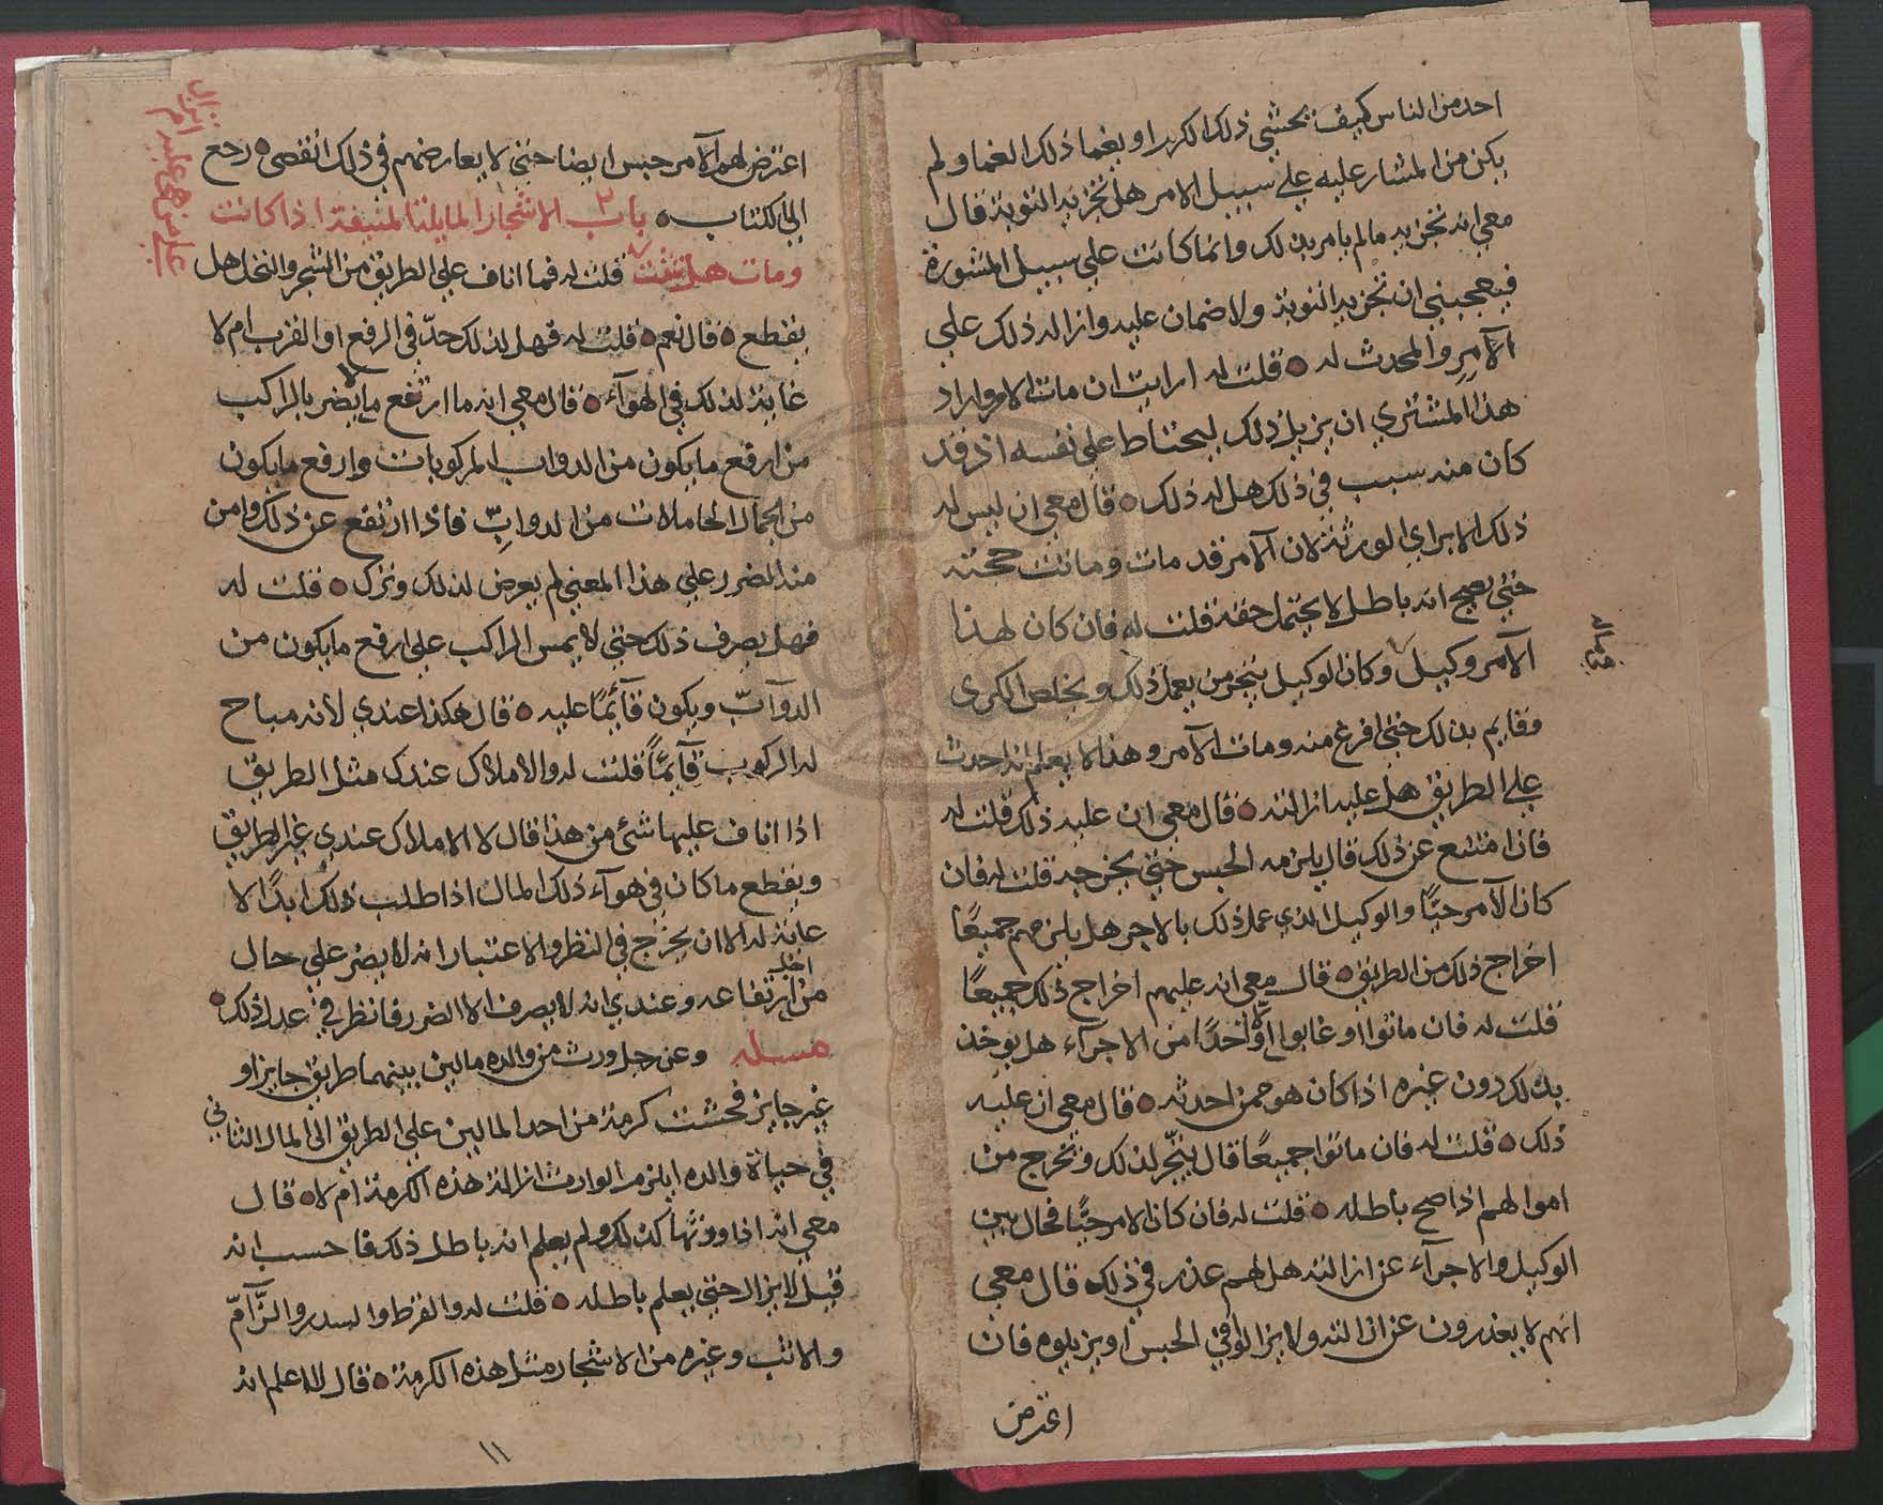 احد من الناس كيف يحشي ذلك الكرر او يغما ذلك الغما ولم
يكن من المشار عليه علي سبيل الامر هل تجزيه التوبة قال
معي انه تجزيه مالم يامر بذلك وانما كانت علي سبيل المشورة
فيعجبني ان تجزيه التوبة ولا ضمان عليه وازاله ذلك علي
الآمر والمحدث له ه قلت له ارايت ان مات الامر واراد
هذا المشتري ان يزيل ذلك ليحتاط علي نفسه اذ قد
كان منه سبب في ذلك هل له ذلك ه قال معي ان ليس له
ذلك الا براي الورثة لان الآمر قد مات وماتت حجته
حتي يصح انه باطل لا يحتمل حقه قلت له فان كان لهذا
الآمر وكيل وكان الوكيل يتجر من يعمل ذلك ويخلص الكرى
وقايم بذلك حتي افرغ منه ومات الآمر وهذا لا يعلم انه احدث
علي الطريق هل عليه ازالته ه قال معي ان عليه ذلك قلت له
فان امتنع عن ذلك قال يلزمه الحبس حتي يخرجه قلت له فان
كان الآمر حيًّا والوكيل الذي عمل ذلك بالاجر هل يلزمهم جميعًا
اخراج ذلك من الطريق ه قال معي انه عليهم اخراج ذلك جميعًا
قلت له فان ماتوا او غابوا الا واحدًا من الاجرآء هل يوخذ
بذلك دون غيره اذا كان هو ممن احدثه ه قال معي ان عليه
ذلك ه قلت له فان ماتوا جميعًا قال يتجّر لذلك وتخرج من
اموالهم اذا صح باطله ه قلت له فان كان الامر حيًّا فحال بين
الوكيل والاجرآء عن ازالته هل لهم عذر في ذلك قال معي
انهم لا يعذرون عن ازالته ولا يزالوا في الحبس او يزيلوه فان
اعترض
اعترض لهم الآمر حبس ايضا حتي لا يعارضهم في ذلك انقضى ه رجع
الي الكتاب ه باب الاشجار المايلة المنيفة اذا كانت
ومات هل تثبت قلت له فما اناف علي الطريق من الشجر والنخل هل
يقطع ه قال نعم ه قلت له فهل لذلك حدّ في الرفع او القرب ام لا
غاية لذلك في الهوآء ه قال معي انه ما ارتفع ما لا يضر بالراكب
من ارفع ما يكون من الدواب المركوبات وارفع ما يكون
من الجمال الحاملات من الدوابّ فاذا ارتفع عن ذلك وامن
منه الضرر علي هذا المعني لم يعرض لذلك وترك ه قلت له
فهل يصرف ذلك حتي لا يمس الراكب علي ارفع ما يكون من
الدوآبّ ويكون قآئمًا عليه ه قال هكذا عندي لأنه مباح
له الركوب قآيمًا قلت له والاملاك عندك مثل الطريق
اذا اناف عليها شئ من هذا قال لا الاملاك عندي غير الطريق
ويقطع ما كان في هوآء ذلك المال اذا طلب ذلك ابدًا لا
غاية له الا ان يخرج في النظر والاعتبار انه لا يضر علي حال
من ارتفاعه وعندي انه لا يصرف الا الضرر فانظر في عدل ذلك ه
مسله وعن رجل ورث من والده مالين بينهما طريق جايز او
غير جايز فحشت كرمة من احد المالين علي الطريق الي المال الثاني
في حياة والده ايلزم الوارث ازالة هذه الكرمة ام لا ه قال
معي انه اذا وورثها كذلك ولم يعلم انه باطل ذلك فاحسب انه
قيل لا يزال حتي يعلم باطله ه قلت له والقرط والسدر والزّآمّ
والاثب وغيره من الاشجار مثل هذه الكرمة ه قال لا اعلم انه
١١